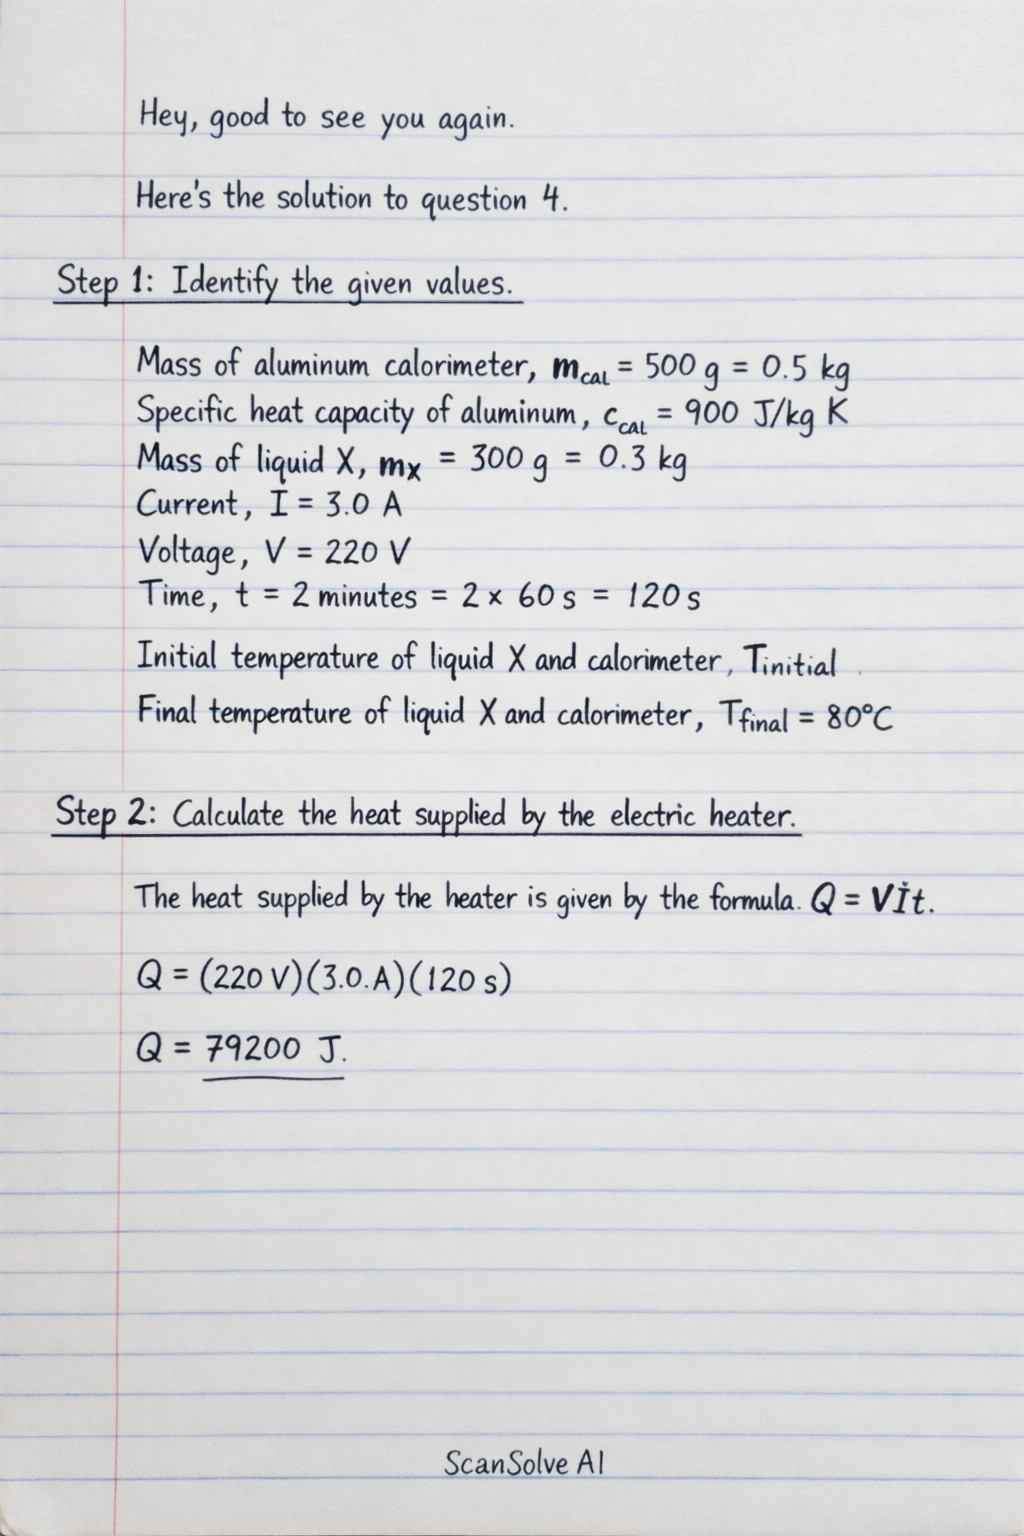 Hey, good to see you again.
Here's the solution to question 4.
Step 1: Identify the given values.
Mass of aluminum calorimeter, m_cal = 500 g = 0.5 kg
Specific heat capacity of aluminum, c_cal = 900 J/kg K
Mass of liquid X, m_X = 300 g = 0.3 kg
Current, I = 3.0 A
Voltage, V = 220 V
Time, t = 2 minutes = 2 × 60 s = 120 s
Initial temperature of liquid X and calorimeter, Tinitial
Final temperature of liquid X and calorimeter, Tfinal = 80°C
Step 2: Calculate the heat supplied by the electric heater.
The heat supplied by the heater is given by the formula. Q = Vİt.
Q = (220 V)(3.0.A)(120 s)
Q = 79200 J.
ScanSolve AI